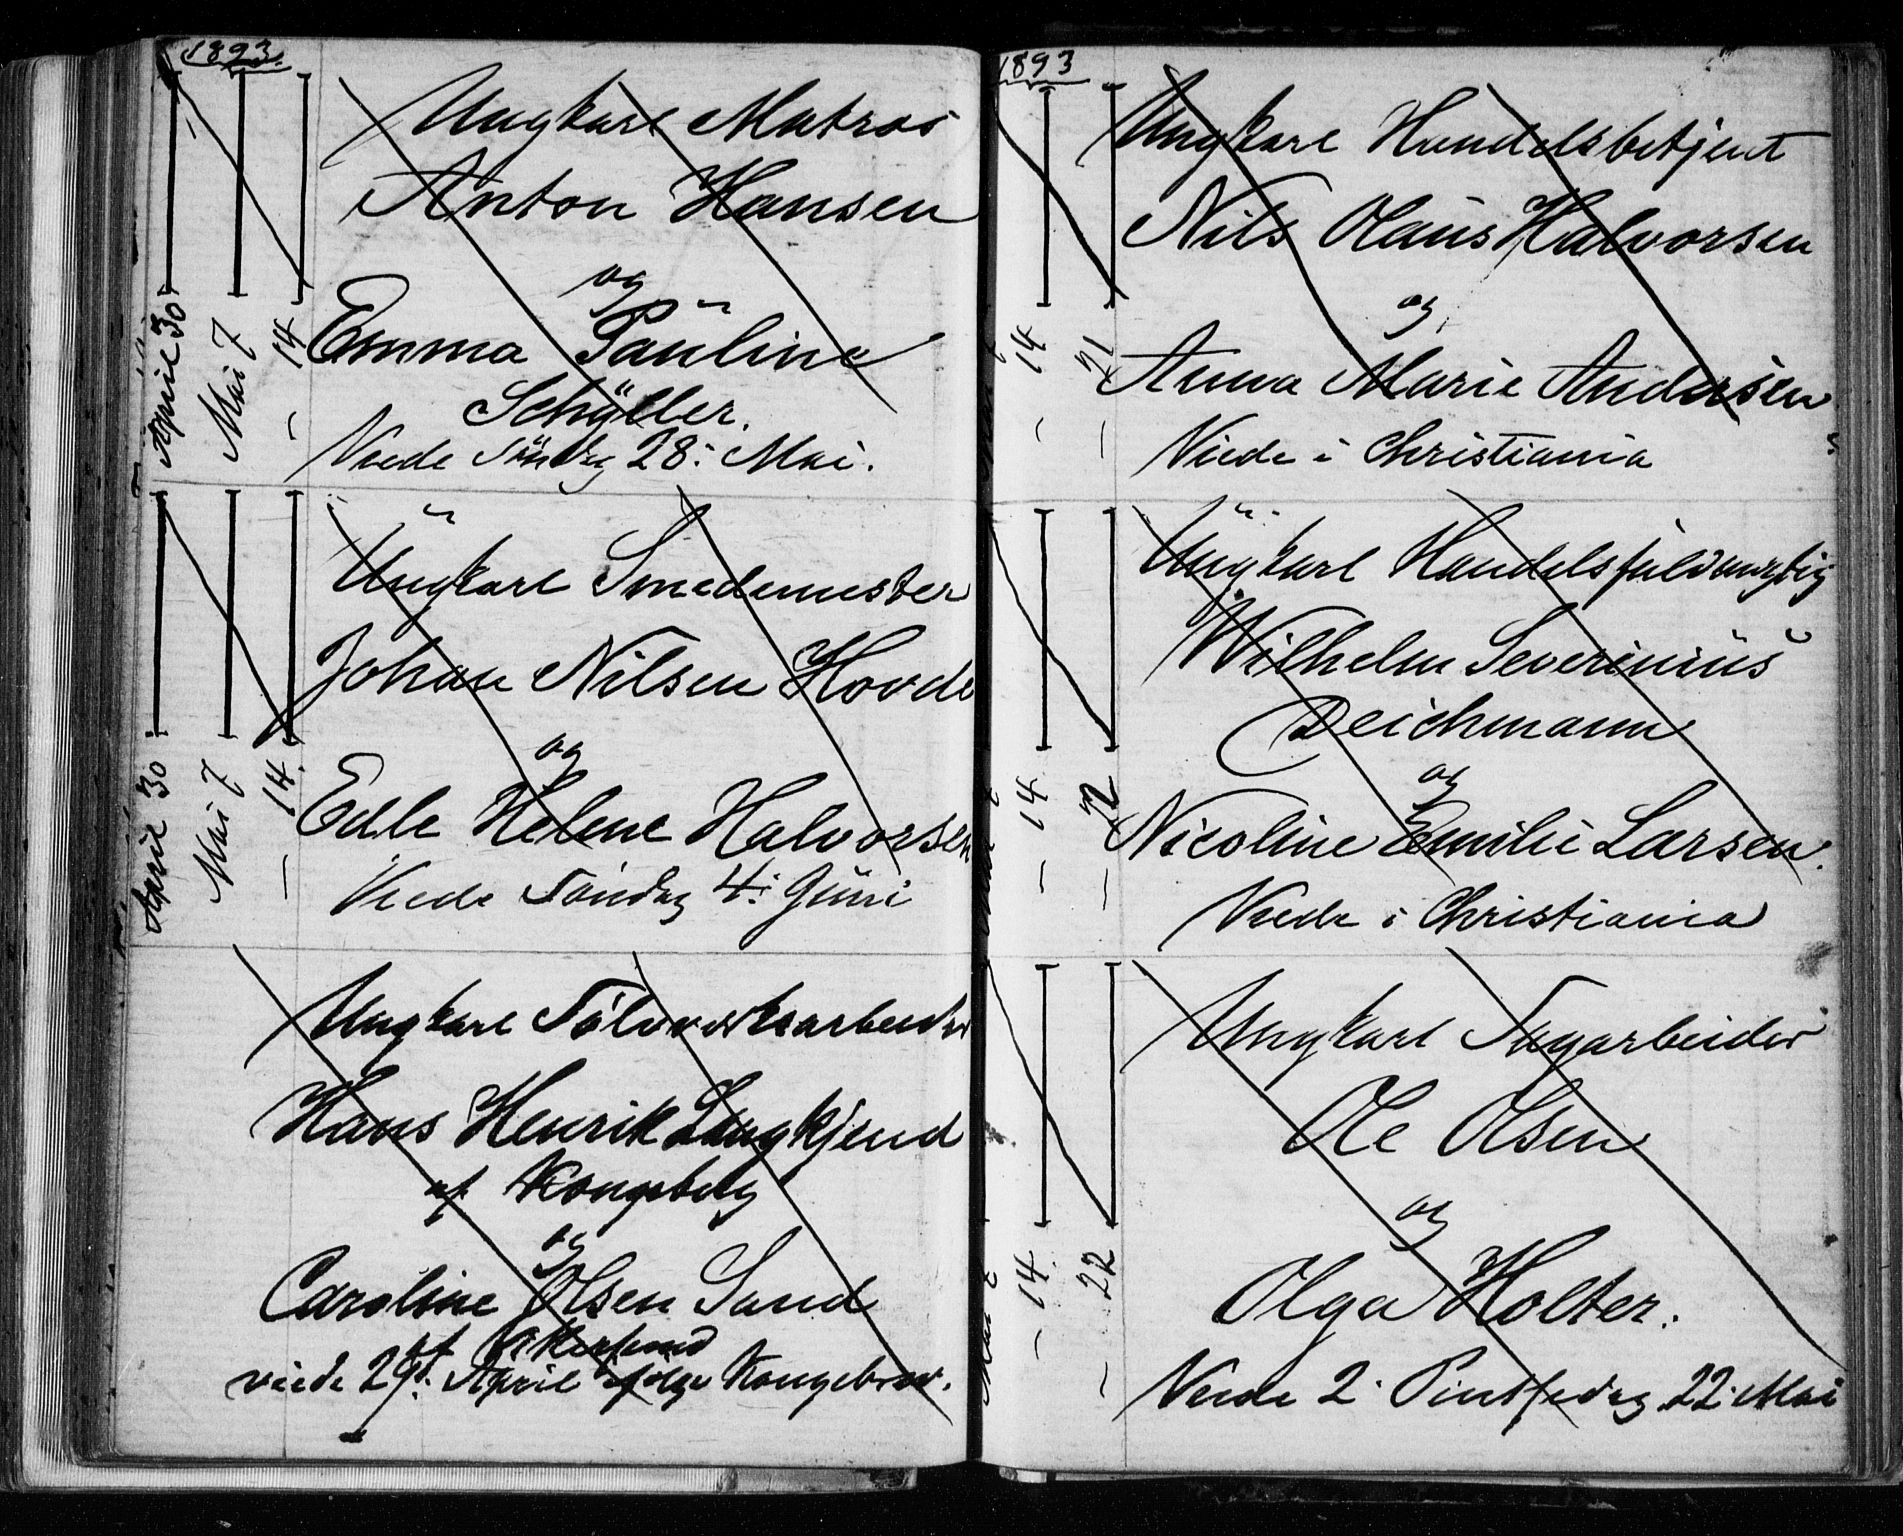 1893.
Ungkarl Matros
Anton Hansen
og
Emma Pauline
Schøller.
Viede Søndag 28: Mai.
April 30
Mai 7
— 14
Ungkarl Smedemester
Johan Nilsen Hovde
og
Edle Helene Halvorsen
Viede Søndag 4: Juni
April 30
Mai 7
— 14.
Ungkarl Sølvverksarbeider
Hans Henrik Langkjend
af Kongsberg
og
Caroline Olsen Sand
af
viede 29: April ifølge Kongebrev.
1893
Ungkarl Handelsbetjent
Nils Olaus Halvorsen
og
Anna Marie Andersen
Viede i Christiania
— 14
— 21
Ungkarl Handelsfuldmægtig
Wilhelm Severinius
Deichmann
og
Nicoline Emilie Larsen.
Viede i Christiania
— 14
— 22
Ungkarl Sagarbeider
Ole Olsen
og
Olga Holter.
Viede 2. Pintsedag 22. Mai
— 14.
— 22